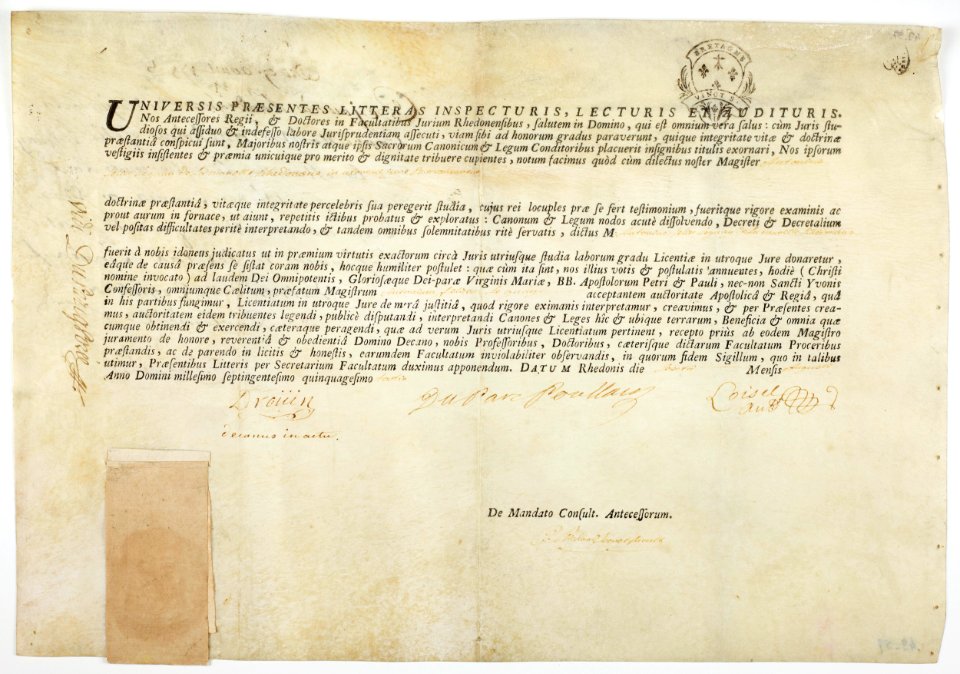 BRETAGNE
UNIVERSIS PRÆSENTES LITTERAS INSPECTURIS, LECTURIS ET AUDITURIS.
Nos Antecessores Regii, & Doctores in Facultatibus Jurium Rhedonensibus, salutem in Domino, qui est omnium vera salus: cùm Juris stu-
diosos qui assiduo & indefesso labore Jurisprudentiam assecuti, viam sibi ad honorum gradus paraverunt, quique integritate vitæ & doctrinæ
præstantiâ conspicui sunt, Majoribus nostris atque ipsis Sacrorum Canonicum & Legum Conditoribus placuerit insignibus titulis exornari, Nos ipsorum
vestigiis insistentes & præmia unicuique pro merito & dignitate tribuere cupientes, notum facimus quòd cùm dilectus noster Magister
doctrinæ præstantiâ, vitæque integritate percelebris sua peregerit studia, cujus rei locuples præ se fert testimonium, fueritque rigore examinis ac
prout aurum in fornace, ut aiunt, repetitis ictibus probatus & exploratus: Canonum & Legum nodos acutè dissolvendo, Decreti & Decretalium
vel positas difficultates peritè interpretando, & tandem omnibus solemnitatibus ritè servatis, dictus M
fuerit à nobis idoneus judicatus ut in præmium virtutis exactorum circà Juris utriusque studia laborum gradu Licentiæ in utroque Jure donaretur,
eâdque de causâ præsens se sistat coram nobis, hocque humiliter postulet: quæ cùm ita sint, nos illius votis & postulatis annuentes, hodiè (Christi
nomine invocato) ad laudem Dei Omnipotentis, Gloriosæque Dei-paræ Virginis Mariæ, BB. Apostolorum Petri & Pauli, nec-non Sancti Yvonis
Confessoris, omniumque Cælitum, præfatum Magistrum acceptantem auctoritate Apostolicâ & Regiâ, quâ
in his partibus fungimur, Licentiatum in utroque Jure de merâ justitiâ, quod rigore eximanis interpretamur, creavimus, & per Præsentes crea-
mus, auctoritatem eidem tribuentes legendi, publicè disputandi, interpretandi Canones & Leges hîc & ubique terrarum, Beneficia & omnia quæ
cumque obtinendi & exercendi, cæteraque peragendi, quæ ad verum Juris utriusque Licentiatum pertinent, recepto priùs ab eodem Magistro
juramento de honore, reverentiâ & obedientiâ Domino Decano, nobis Professoribus, Doctoribus, cæterisque dictarum Facultatum Proceribus
præstandis, ac de parendo in licitis & honestis, earumdem Facultatum inviolabiliter observandis, in quorum fidem Sigillum, quo in talibus
utimur, Præsentibus Litteris per Secretarium Facultatum duximus apponendum. DATUM Rhedonis die Mensis
Anno Domini millesimo septingentesimo quinquagesimo
Drouin Du Parc Poullain Loisel
decanus in actu.
De Mandato Consult. Antecessorum.